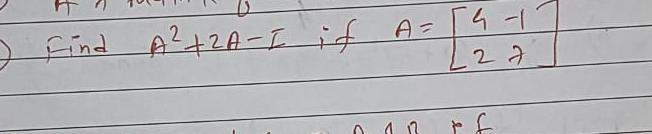 Find A²+2A-I if A= [4 -1
2 7]